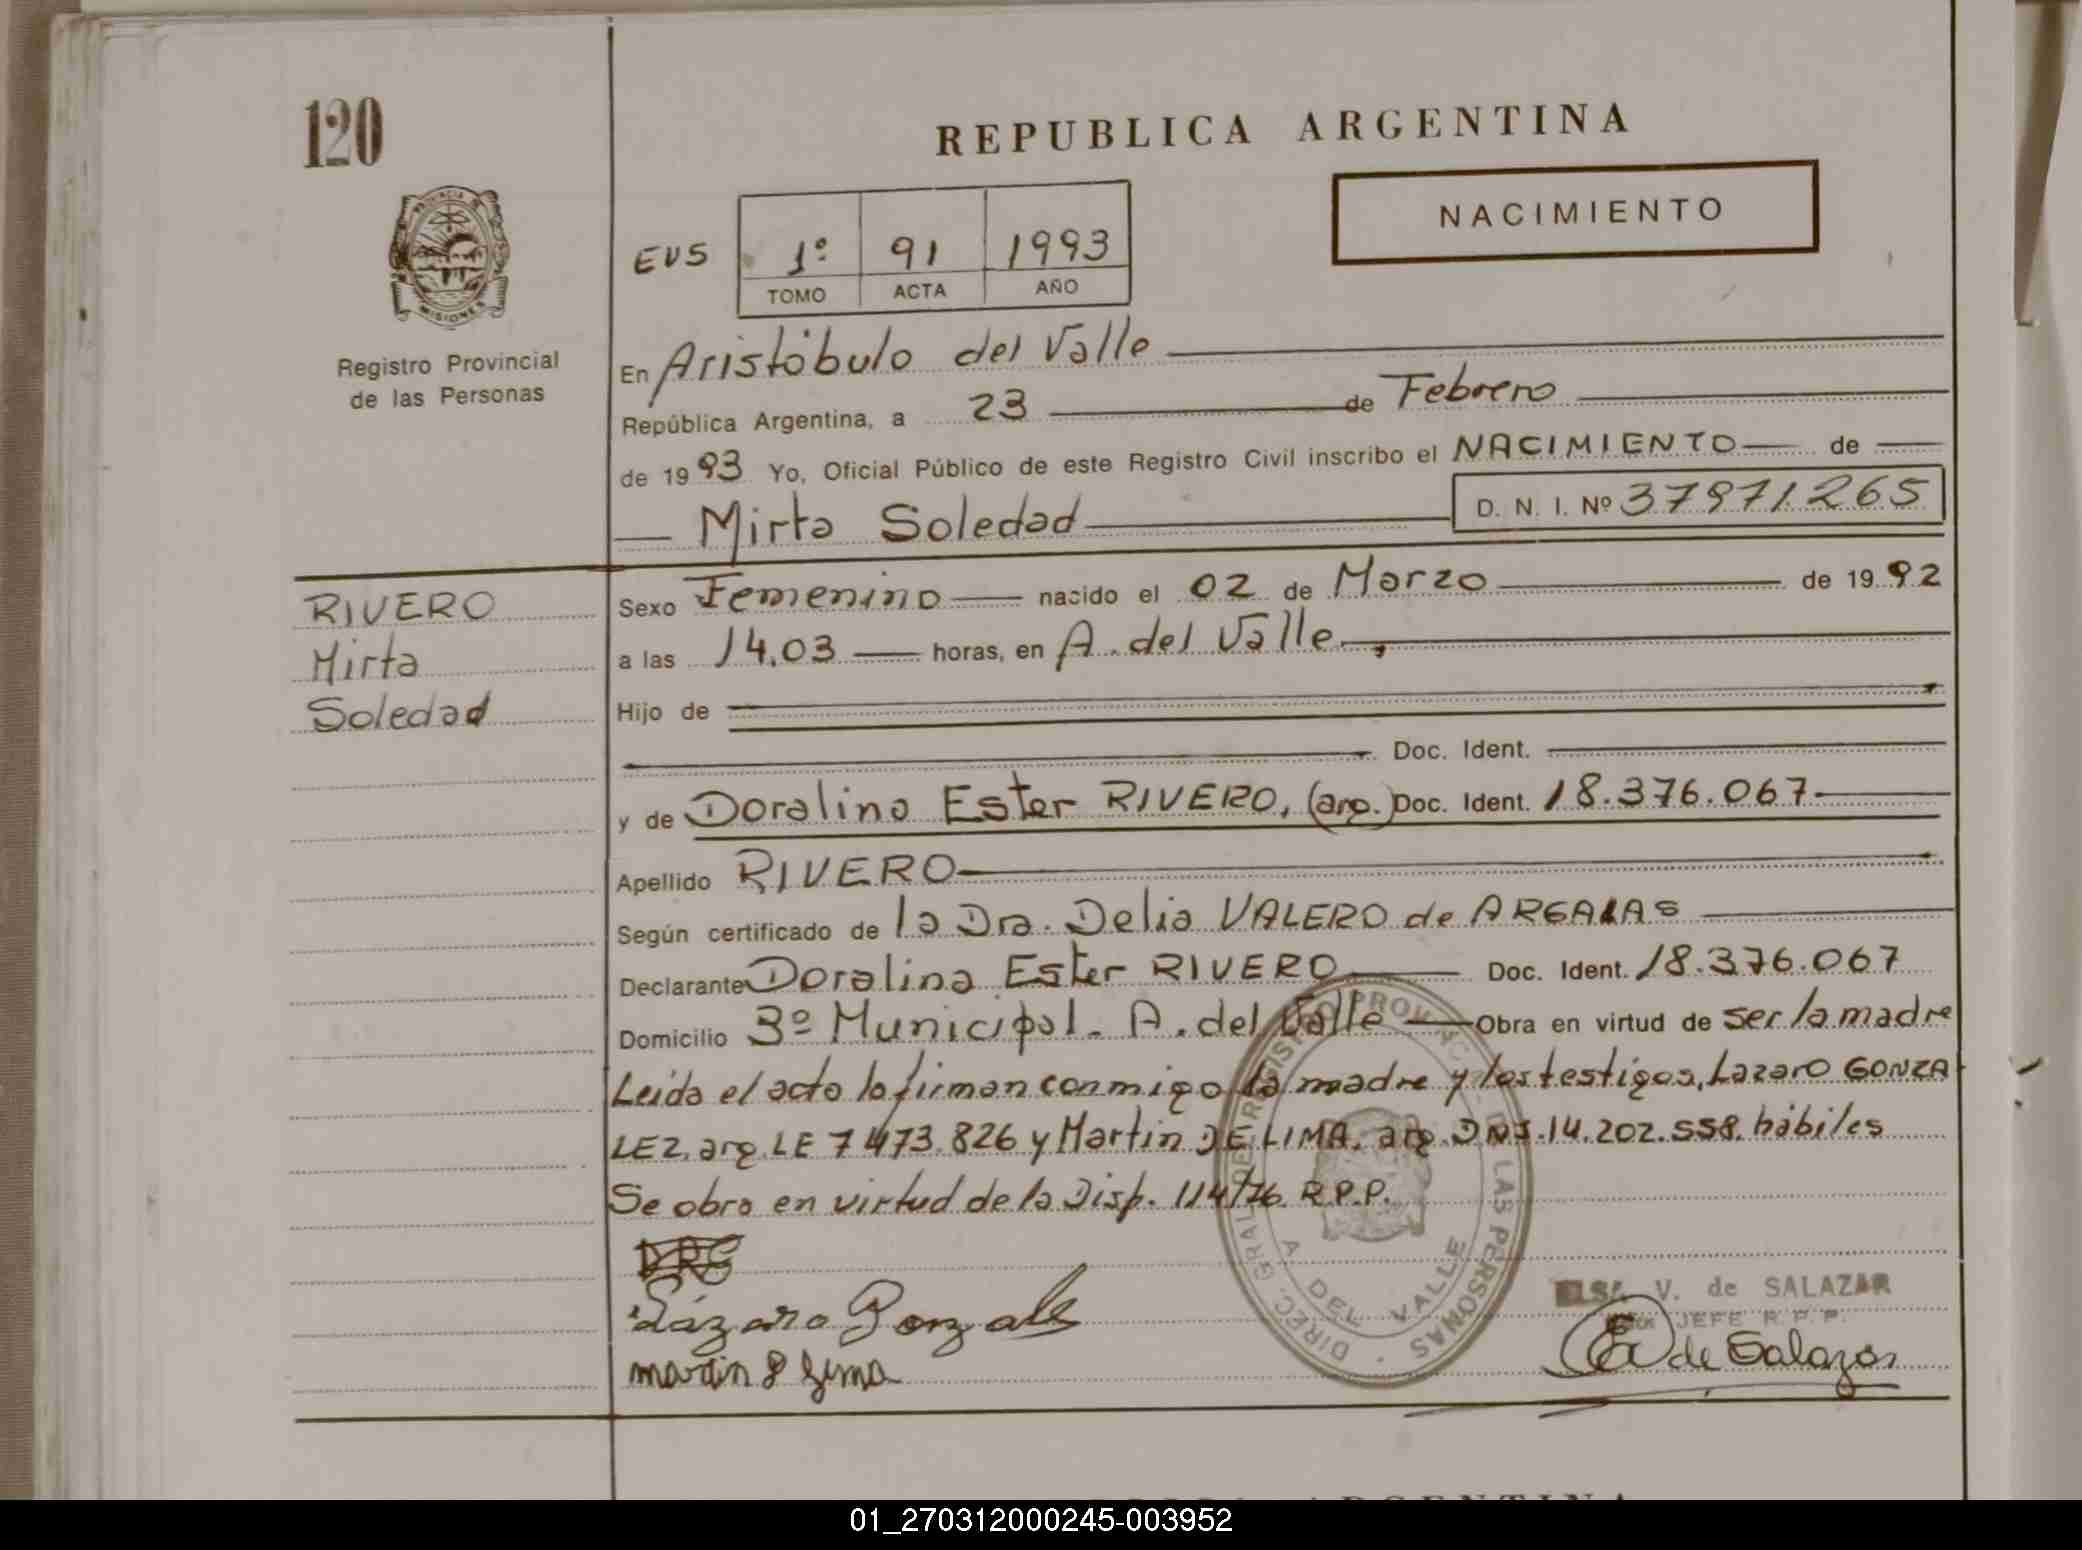 120
REPUBLICA ARGENTINA
NACIMIENTO
PROVINCIA DE
MISIONES
Registro Provincial
de las Personas
EVS
1º 91 1993
TOMO ACTA AÑO
En Aristóbulo del Valle
República Argentina, a 23 de Febrero
de 1993 Yo, Oficial Público de este Registro Civil inscribo el NACIMIENTO de
Mirta Soledad D. N. I. Nº 37971265
RIVERO
Mirta
Soledad
Sexo Femenino nacido el 02 de Marzo de 1992
a las 14.03 horas, en A. del Valle
Hijo de
Doc. Ident.
y de Doralina Ester RIVERO, (arg.) Doc. Ident. 18.376.067
Apellido RIVERO
Según certificado de la Dra. Delia VALERO de
Declarante Doralina Ester RIVERO Doc. Ident. 18.376.067
Domicilio 3º Municipal. A. del Valle Obra en virtud de ser la madre
Leída el acta la firman conmigo la madre y los testigos, Lazaro GONZA
LEZ, arg. LE 7473.826 y Martin DE LIMA, arg. DNI. 14.202.558. hábiles
Se obra en virtud de la Disp. 114/76 R.P.P.
DRE
Lázaro Gonzale
DIREC. GRAL. DEL REGISTRO PROVINCIAL DE LAS PERSONAS
A DEL VALLE
ELSA V. de SALAZAR
JEFE R.P.P.
martin d Lima
EV de Salazar
01_270312000245-003952